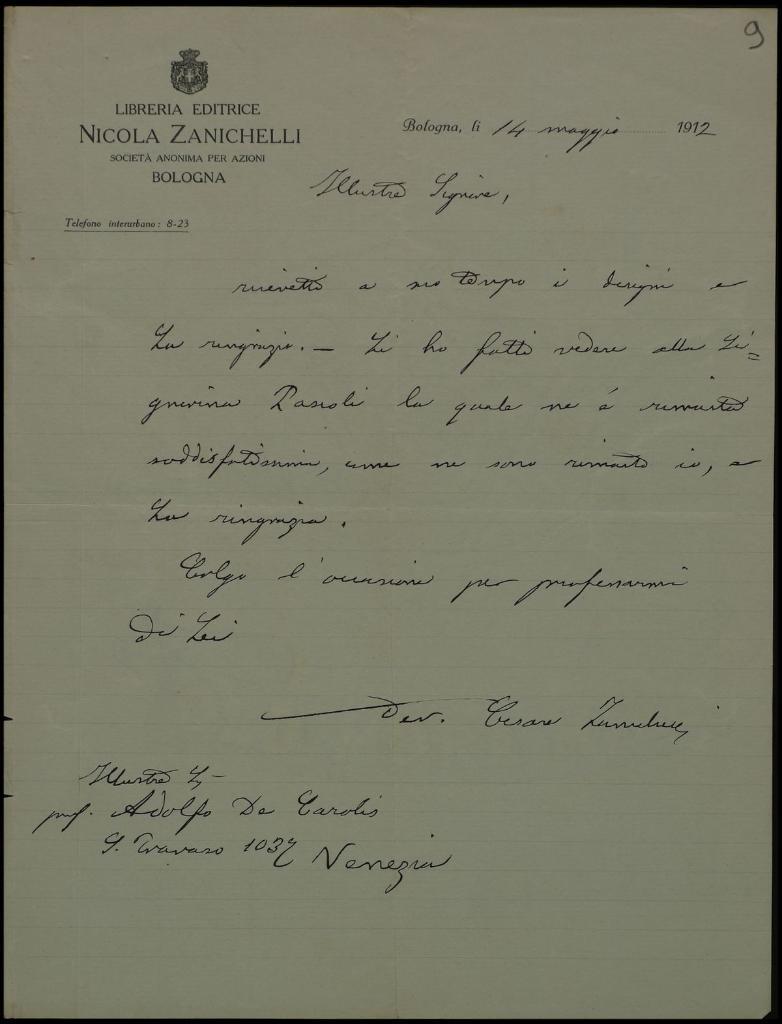 9
LIBRERIA EDITRICE
NICOLA ZANICHELLI
SOCIETÀ ANONIMA PER AZIONI
BOLOGNA
Telefono interurbano: 8-23
Bologna, li 14 maggio 1912
Illustre Signore,
ricevetti a suo tempo i disegni e
La ringrazio. — Li ho fatti vedere alla Si=
gnorina Pascoli la quale ne è rimasta
soddisfatissima, come ne sono rimasto io, e
La ringrazia.
Colgo l'occasione per professarmi
di Lei
Dev. Cesare Zanichelli
Illustre
prof. Adolfo De Carolis
S. Trovaso 1037 Venezia